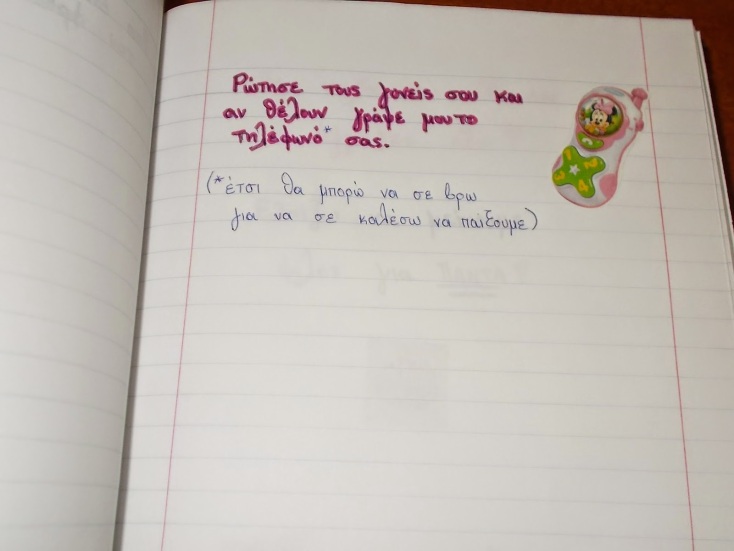 Ρώτησε τους γονείς σου και
αν θέλουν γράψε μου το
τηλέφωνό* σας.
(*έτσι θα μπορώ να σε βρω
για να σε καλέσω να παίξουμε)
1 2
3 4